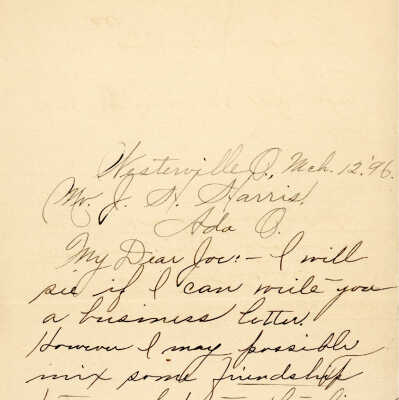 Westerville O., Mch. 12.'96.
Mr. J. H. Harris!
Ada O.
My Dear Joe:- I will
see if I can write you
a business letter.
However I may possible
mix some friendship